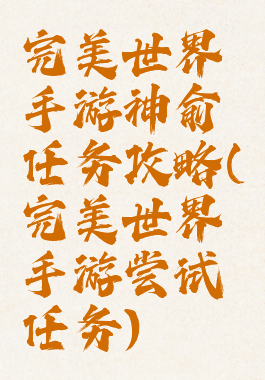 完美世界
手游神俞
任务攻略(
完美世界
手游尝试
任务)